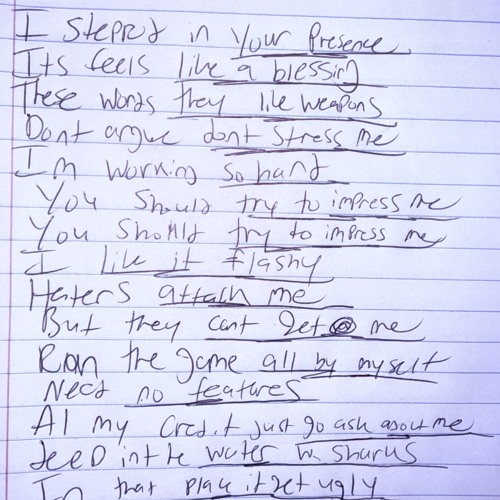 I stepped in your Presence
Its feels like a blessing
These words they like weapons
Dont argue dont stress me
Im working so hard
You should try to impress me
You should try to impress me
I like it flashy
Haters attack me
But they cant get me
Ran the game all by myself
Need no features
Al my credit just go ask about me
deep in the water w sharks
In that place it get ugly